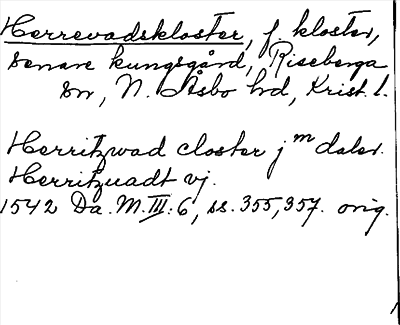 Herrevadskloster, f. kloster,
senare kungsgård, Riseberga
sn, N. Åsbo hd, Krist. l.
Herritzwad closter j m daler.
Herritzuadt vj.
1542 Da. M. III: 6, ss. 355, 357. orig.